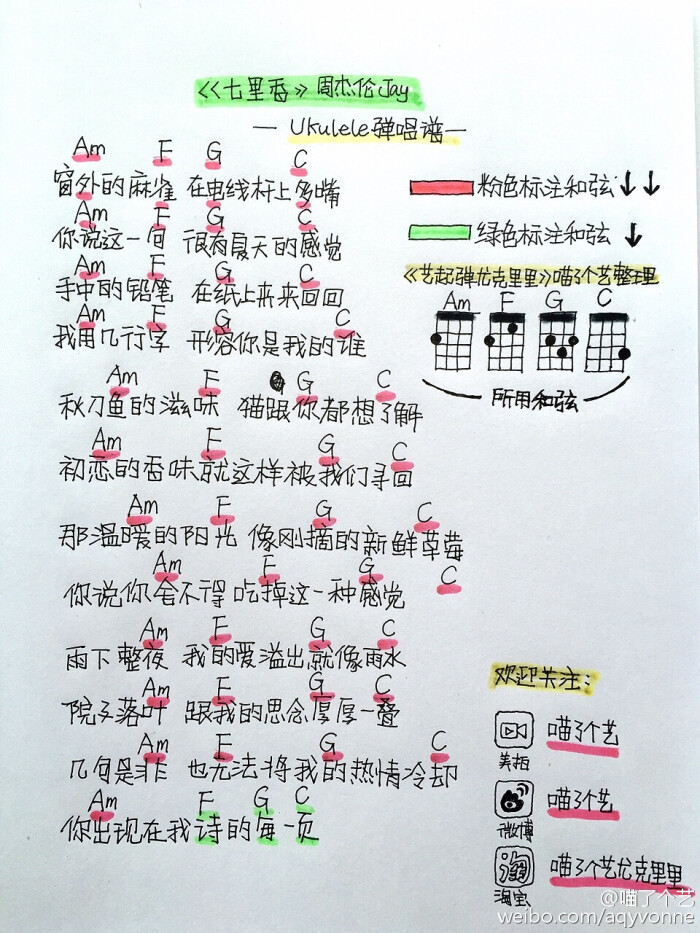 《七里香》周杰伦Jay
— Ukulele弹唱谱 —
粉色标注和弦 ↓↓
绿色标注和弦 ↓
《艺起弹尤克里里》喵了个艺整理
Am F G C
所用和弦
Am F G C
窗外的麻雀 在电线杆上多嘴
Am F G C
你说这一句 很有夏天的感觉
Am F G C
手中的铅笔 在纸上来来回回
Am F G C
我用几行字 形容你是我的谁
Am F G C
秋刀鱼的滋味 猫跟你都想了解
Am F G C
初恋的香味就这样被我们寻回
Am F G C
那温暖的阳光 像刚摘的新鲜草莓
Am F G C
你说你舍不得吃掉这一种感觉
Am F G C
雨下整夜 我的爱溢出就像雨水
Am F G C
院子落叶 跟我的思念厚厚一叠
Am F G C
几句是非 也无法将我的热情冷却
Am F G C
你出现在我诗的每一页
欢迎关注:
喵了个艺
美拍
喵了个艺
微博
淘
喵了个艺尤克里里
淘宝
@喵了个艺
weibo.com/aqyvonne